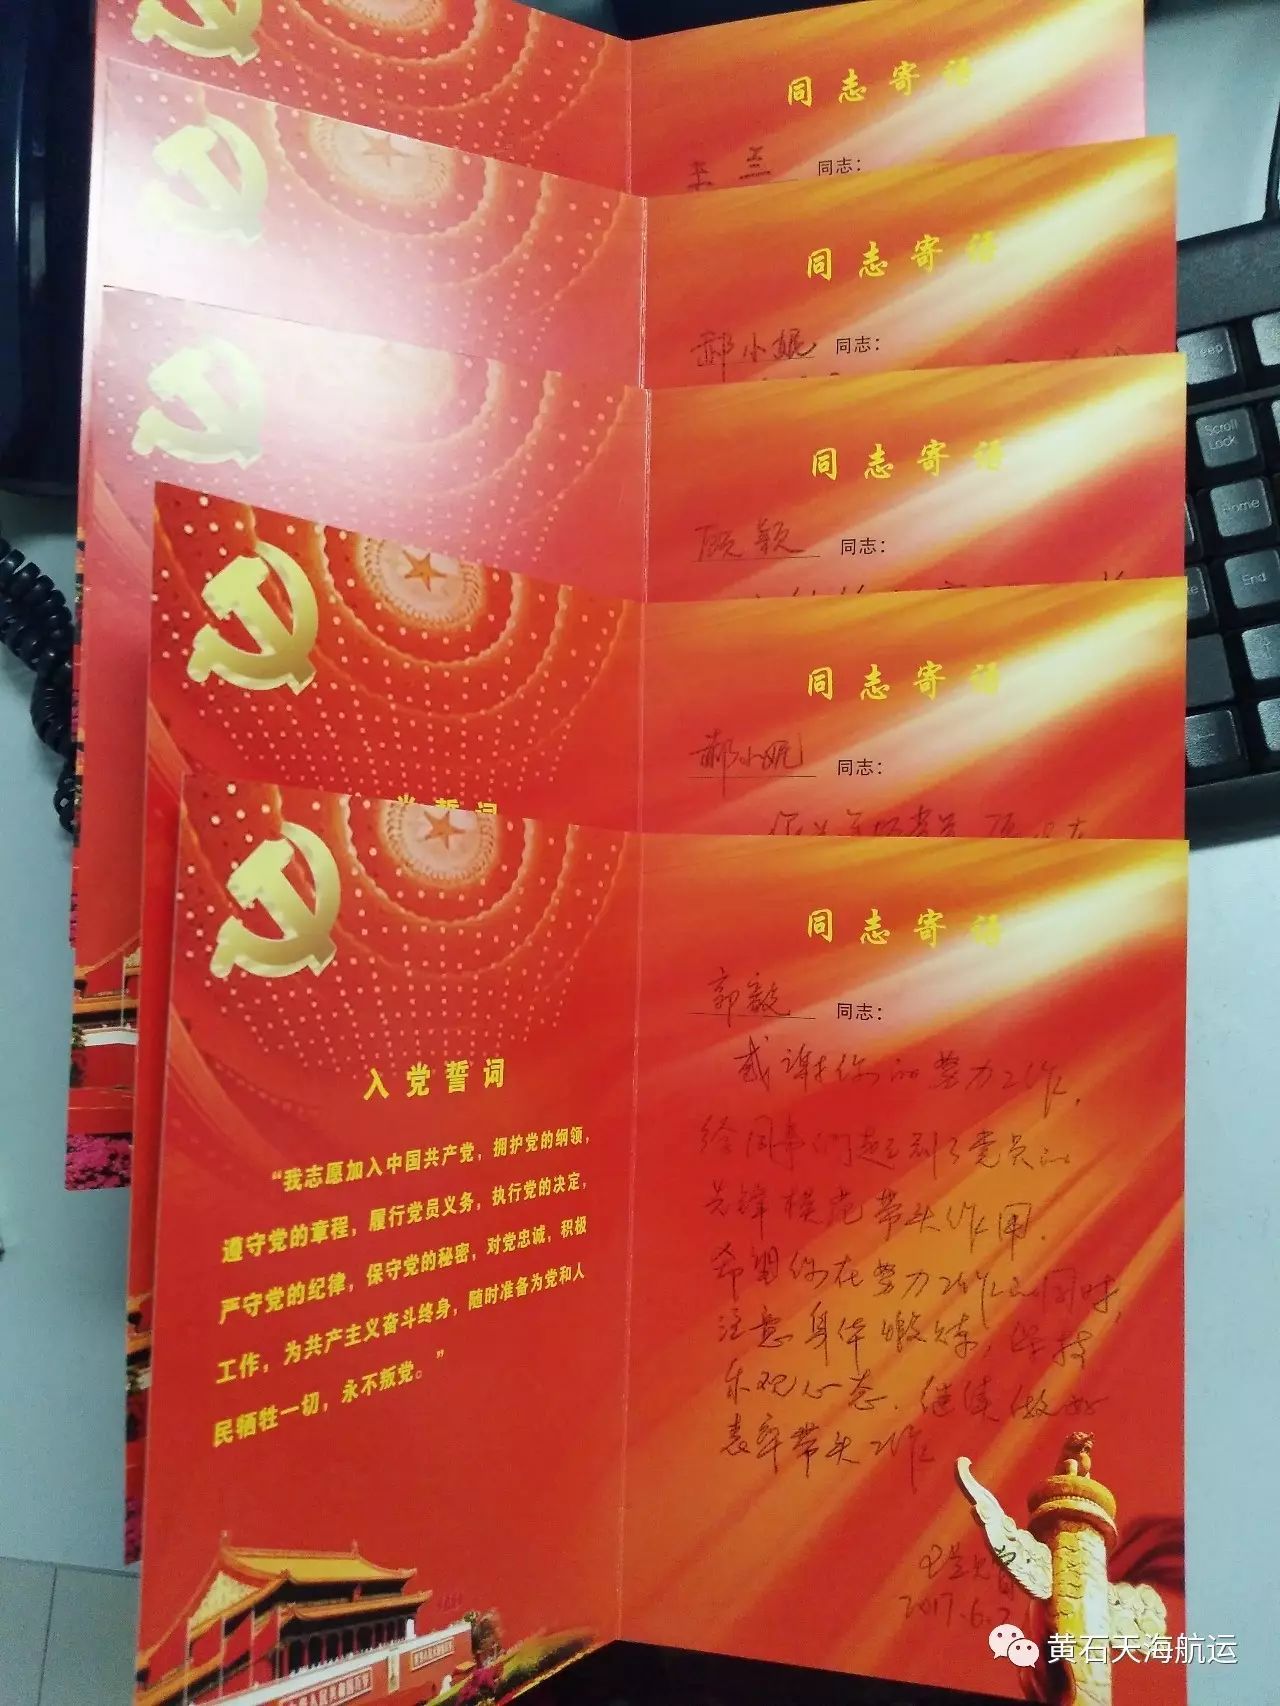 同志寄语
同志：
同志寄语
郝小妮 同志：
同志寄语
顾颖 同志：
同志寄语
郝小妮 同志：
入党誓词
同志寄语
郭毅 同志：
感谢你的努力工作，
给同事们起到了党员的
先锋模范带头作用.
希望你在努力工作的同时，
注意身体锻炼，保持
乐观心态.继续做好
表率带头工作
2017.6.2
入党誓词
“我志愿加入中国共产党，拥护党的纲领，
遵守党的章程，履行党员义务，执行党的决定，
严守党的纪律，保守党的秘密，对党忠诚，积极
工作，为共产主义奋斗终身，随时准备为党和人
民牺牲一切，永不叛党。”
Scroll
Lock
Home
End
黄石天海航运